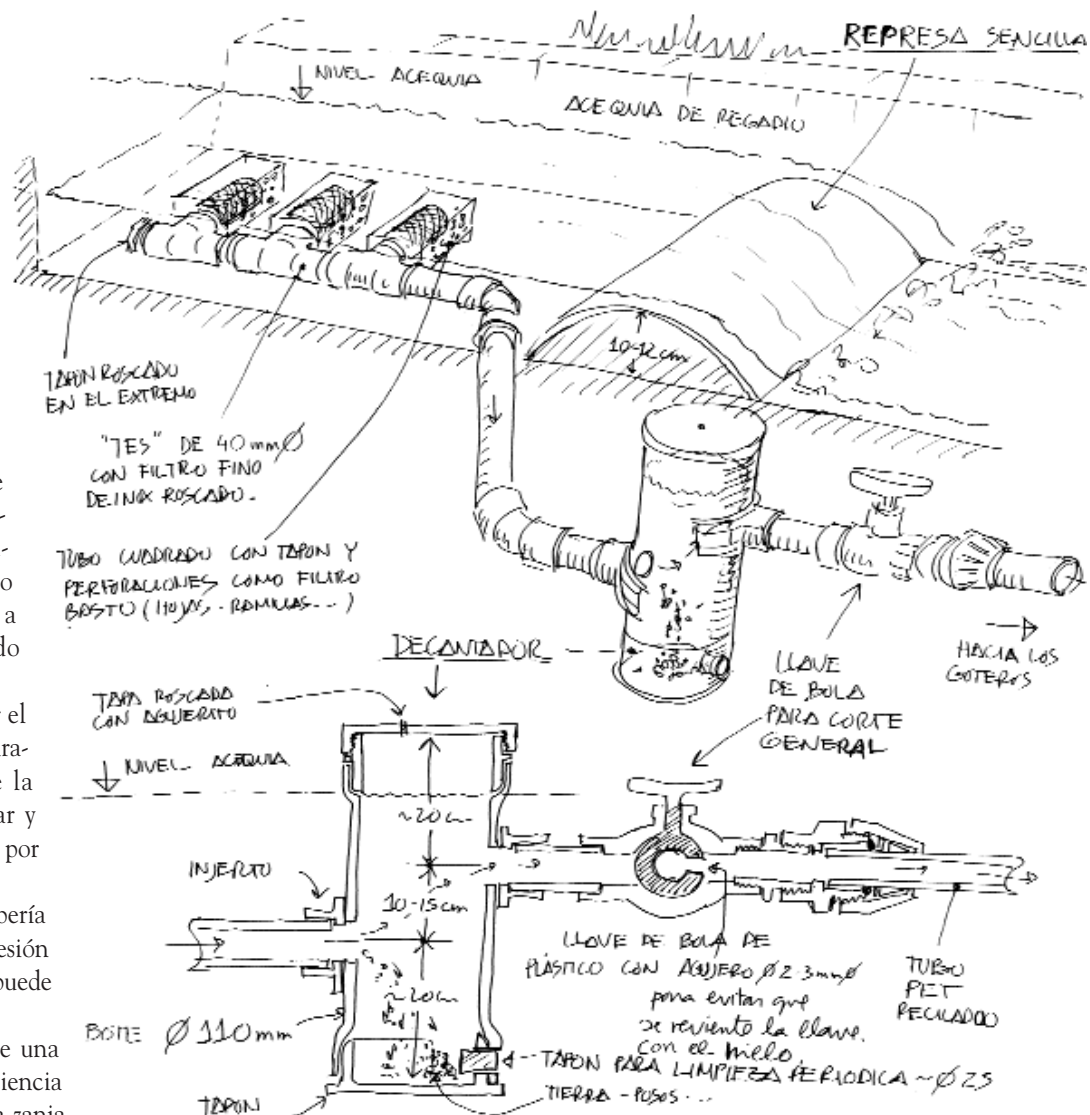 REPRESA SENCILLA
NIVEL ACEQUIA
ACEQUIA DE REGADIO
10-12 cm
TAPON ROSCADO
EN EL EXTREMO
"TES" DE 40 mm Ø
CON FILTRO FINO
DE INOX ROSCADO.
TUBO CUADRADO CON TAPON Y
PERFORACIONES COMO FILTRO
BASTO (HOJAS, RAMILLAS...)
HACIA LOS
GOTEROS
LLAVE
DE BOLA
PARA CORTE
GENERAL
DECANTADOR
TAPA ROSCADA
CON AGUJERITO
NIVEL ACEQUIA
~20 cm
INJERTO
10-15 cm
LLAVE DE BOLA DE
PLÁSTICO CON AGUJERO Ø 2-3 mm Ø
para evitar que
se reviente la llave
con el hielo.
TUBO
PET
RECICLADO
~20 cm
BOTE Ø 110 mm
TAPON PARA LIMPIEZA PERIODICA ~Ø 25
TIERRA - POSOS...
TAPON
e
-
-
o
a
do
el
ra-
e la
ar y
por
bería
esión
puede
e una
iencia